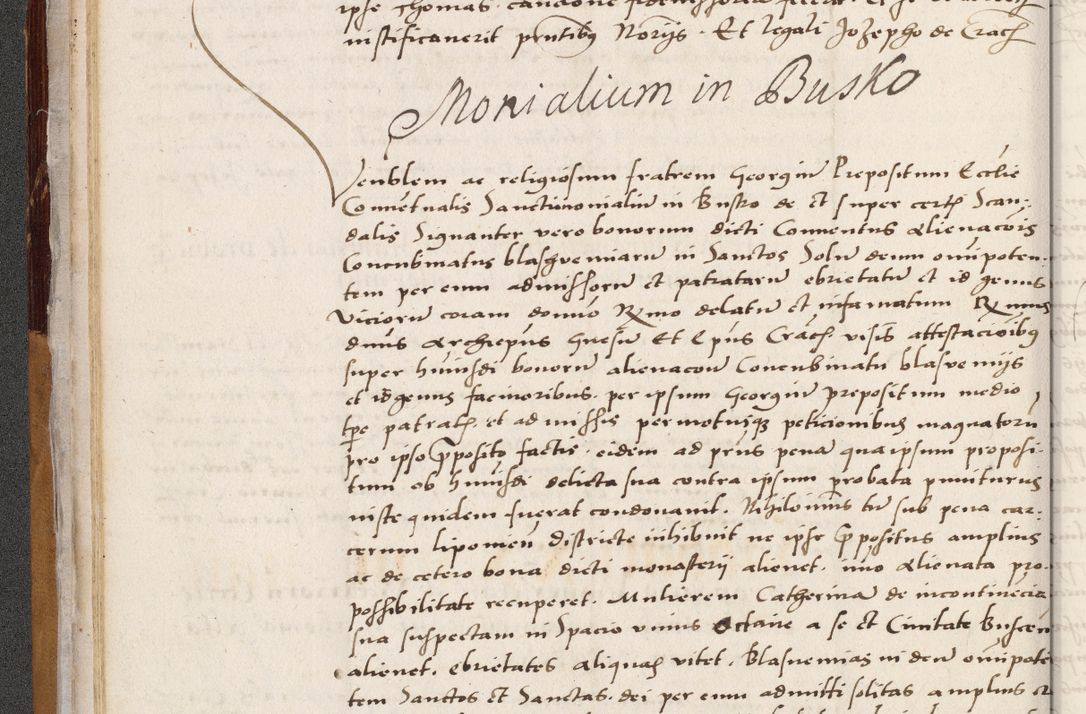 ipse Thomas
iustificaverit pntibus Norijs. Et legali Jozepho de Crach
Monialium in Busko
Venblem ac religiosum fratrem Georgiu Prepositum Ecclie
Conventualis Sanctimonialiu in Busko de et super certis Scan-
dalis Signanter vero bonorum dicti Conventus alienacois
Concubinatus blasphemiaru in Sanctos Solu deum omipoten-
tem per eum admissoru et patrataru ebrietatu et id genus
Vicioru coram domno Rmo delatu et infamatum Rmus
dnus Archiepus Gnesn Et Epus Crach visis attestacioibus
super huiusdi bonoru alienacou Concubinatu blasvemijs
et id genus facinoribus per ipsum Georgiu prepositum medio
tpe patratis et admissis permotusque peticionibus magnatoru
pro ipso pposito factis eidem ad prns pena qua ipsum proposi-
tum ob huiusdi delicta sua contra ipsum probata puniturus
iuste quidem fuerat condonavit. Nihilominus tn sub pena car-
cerum Liponien districte inhibuit ne ipse ppositus amplius
ac de cetero bona dicti monasterij alienet. imo alienata pro
possibilitate recuperet. Mulierem Catherina de incontinecia
sua suspectam in Spacio unius Octave a se et Civitate Buscen
alienet. ebrietates aliquas vitet. Blasvemias in deu omipote
tem Sanctos et Sanctas dei per eum admitti solitas amplius et